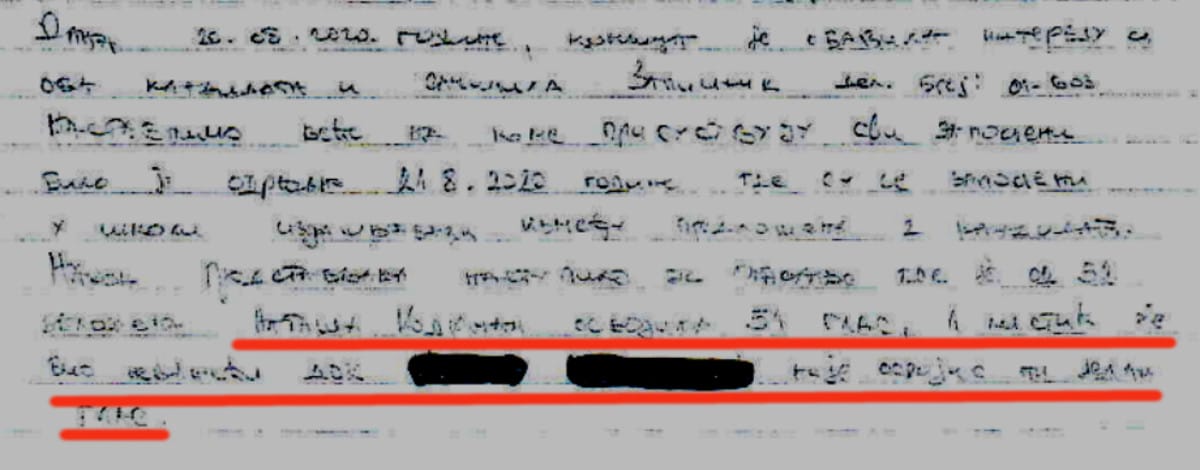 Дана, 20.08.2020. године, комисија је обавила интервју са
оба кандидата и сачинила Записник дел. број: 01-603
Наставничко веће на коме присуствују сви запослени
било је одржано 21.8.2020 године где су се запослени
у школи изјашњавали између предложена 2 кандидата.
Након представљања наступило је гласање где је од 52
Наташа осводила 51 глас, 1 листић је
био неважећи док није освојио ни један
глас.